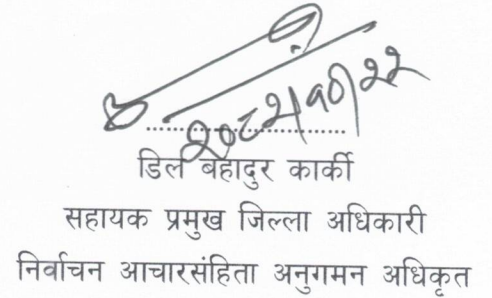 २०८२।१०।२२
डिल बहादुर कार्की
सहायक प्रमुख जिल्ला अधिकारी
निर्वाचन आचारसंहिता अनुगमन अधिकृत